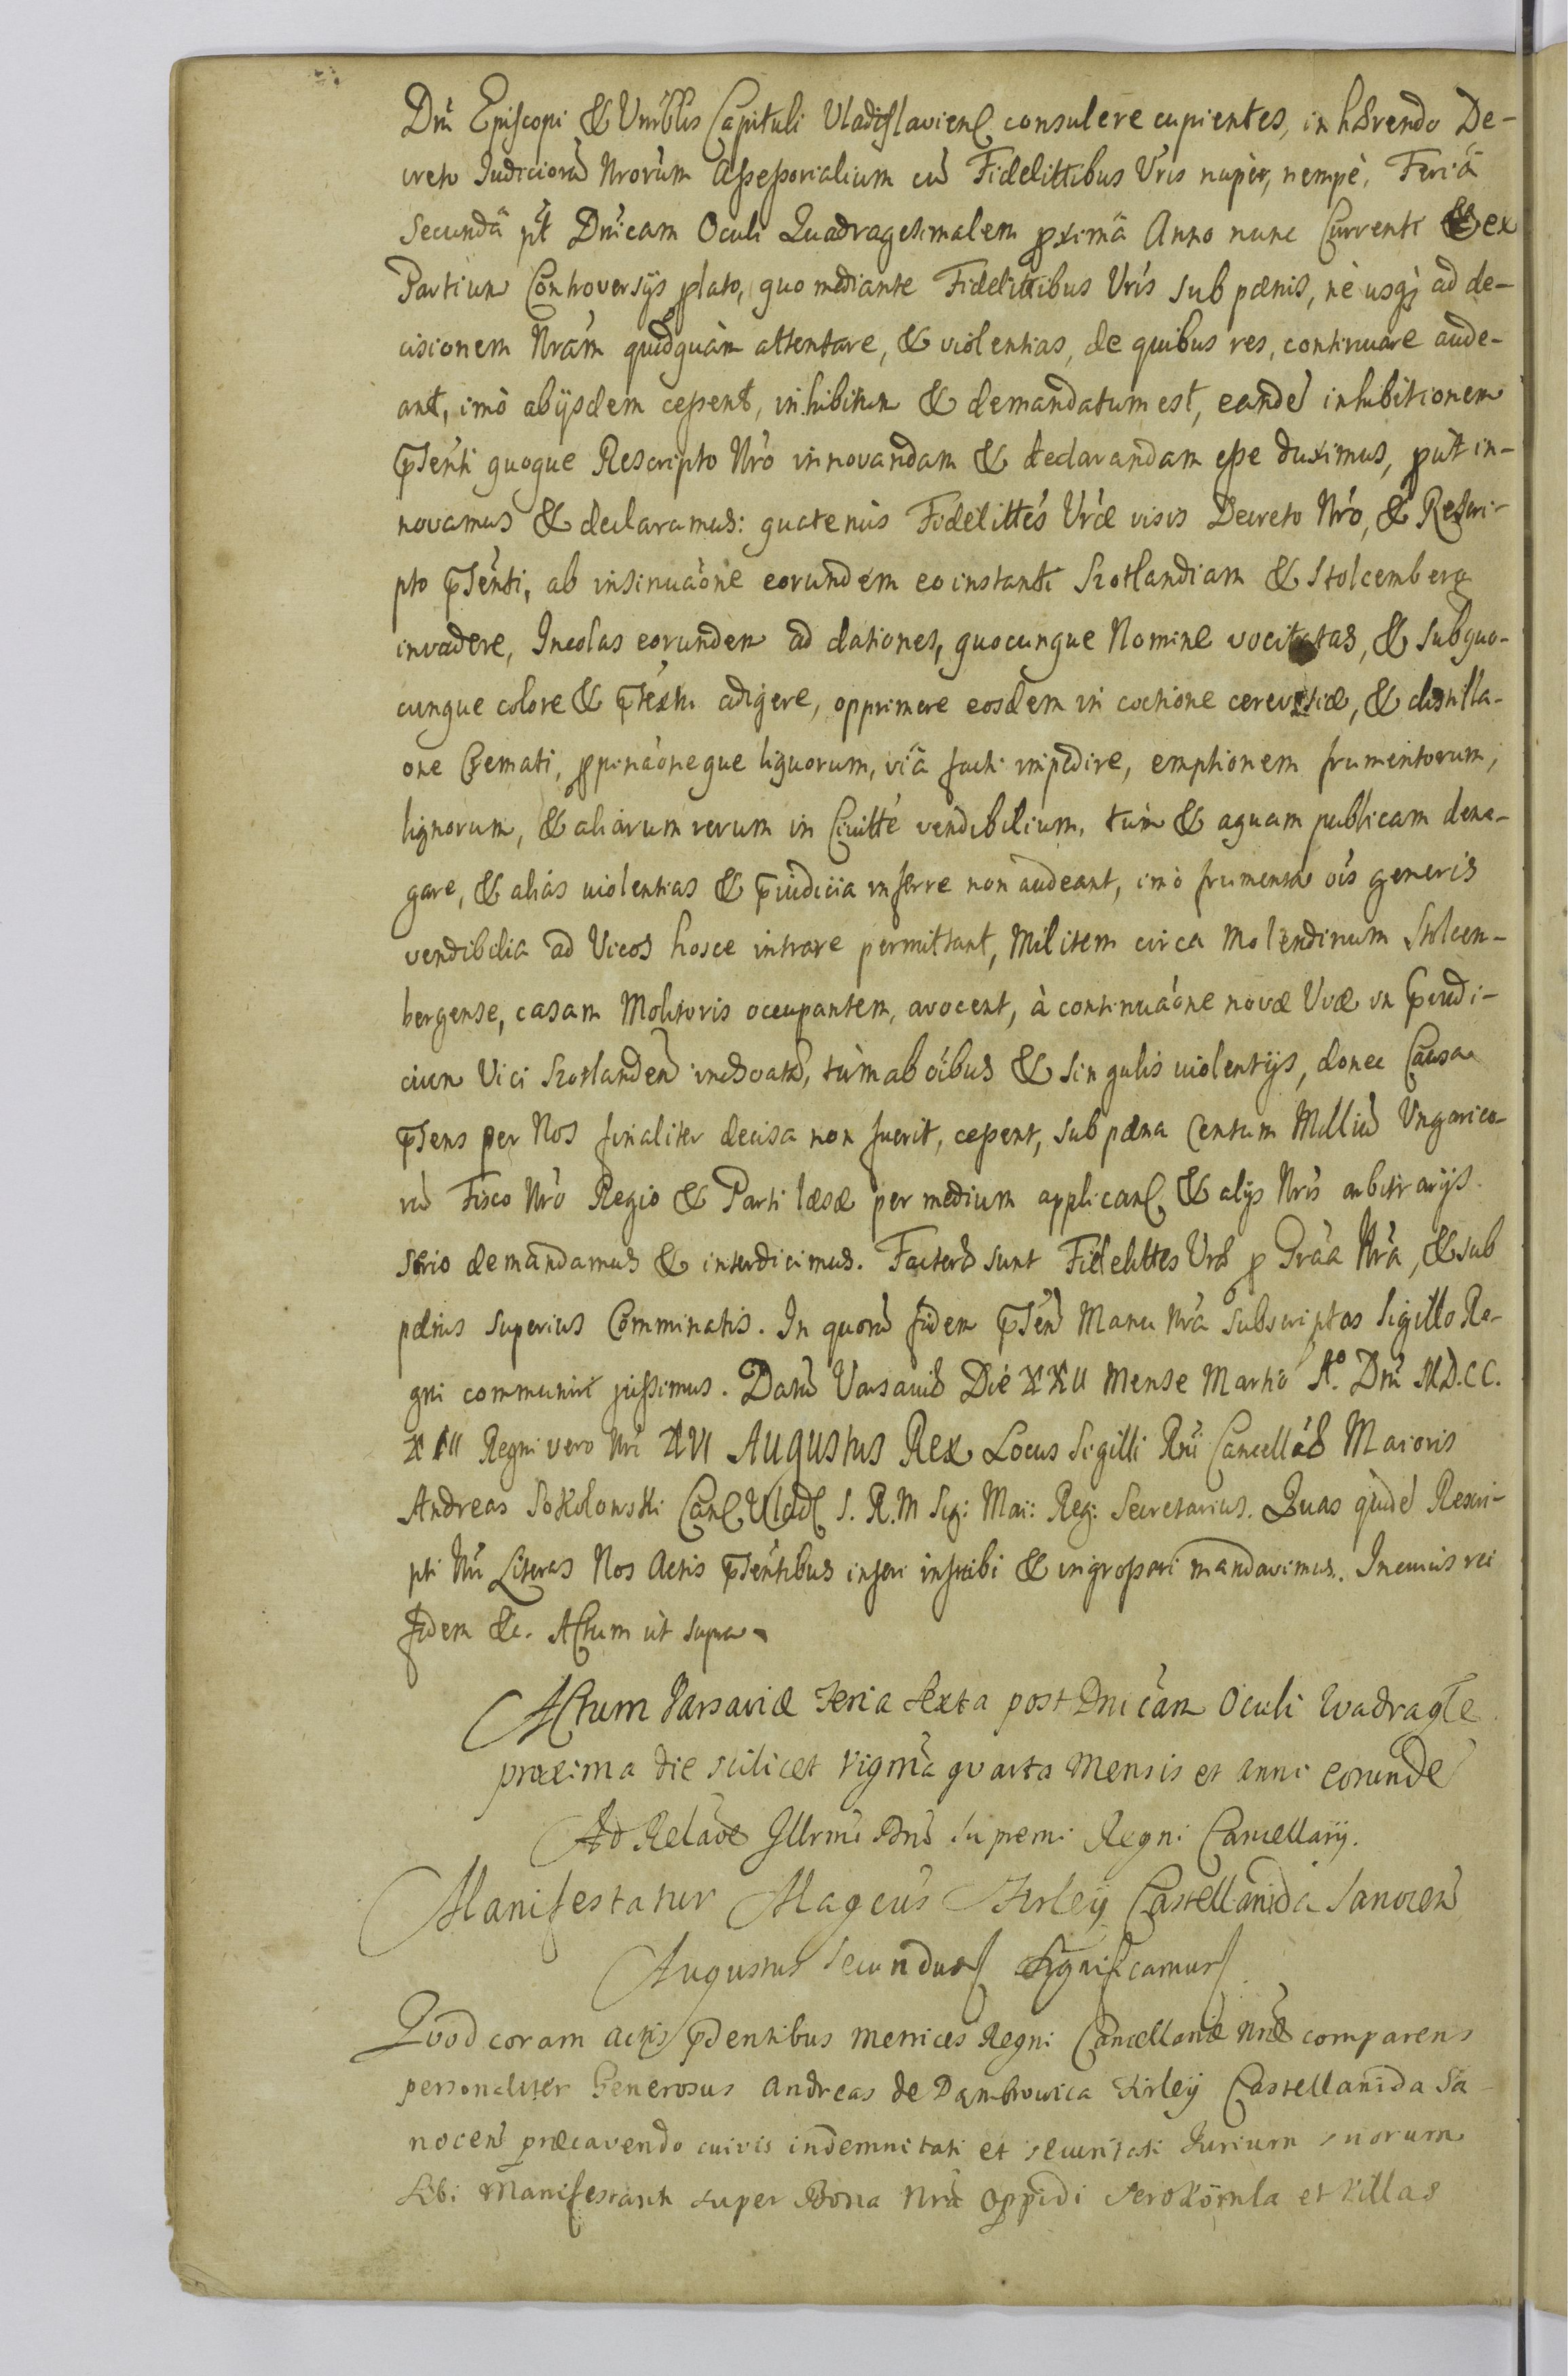 Dni Episcopi & Vnrblis Capituli Vladislavien consulere cupientes, inhærendo De-
creto Iudicioru Nrorum Assessorialium cu Fidelittibus Vris nuper, nempè, Feriâ
Secundâ pt Dnicam Oculi Quadragesimalem pximâ Anno nunc Currenti & ex
Partium Controversijs plato, quo mediante Fidelittibus Vris sub pænis, nè usq; ad de-
cisionem Nram quidquàm attentare, & violentias, de quibus res, continuare aude-
ant, imò abijsdem cessent, inhibitum & demandatum est, eande inhibitionem
pnti quoque Rescripto Nro innovandam & declarandam esse duximus, put in-
novamus & declaramus: quatenùs Fidelittes Vræ visis Decreto Nro, & Rescri-
pto psenti, ab insinuaone eorundem eo instanti Szotlandiam & Stolcemberg
invadere, Incolas eorundem ad dationes, quocunque Nomine vocitatas, & subquo-
cunque colore & ptextu adigere, opprimere eosdem in coctione cerevisiæ, & distilla-
one Cremati, ppinaoneque liquorum, viâ facti impedire, emptionem frumentorum,
lignorum, & aliarum rerum in Civitte vendibilium, tùm & aquam publicam dene-
gare, & aliàs violentias & piudicia inferre non audeant, imò frumenta ois generis
vendibilia ad Vicos hosce intrare permittant, Militem circa Molendinum Stolcen-
bergense, casam Molitoris occupantem, avocent, à continuaone novæ Viæ in piudi-
cium Vici Szotlanden inchoatæ, tùm ab oibus & singulis violentijs, donec Causa
psens per Nos finaliter decisa non fuerit, cessent, sub pæna Centum Milliu Vngarico-
ru Fisco Nro Regio & Parti læsæ per medium applican & alijs Nris arbitrarijs
serio demandamus & interdicimus. Facteræ sunt Fidelittes Vræ p Graa Nra, & sub
pænis superius Comminatis. In quoru fidem psen Manu Nra subscriptas Sigillo Re-
gni communiri jussimus. Datu Varsaviæ Die XXII Mense Martio Ao. Dni M.D.CC.
XIII Regni vero Nri XVI Augustus Rex Locus Sigilli Rni Cancellaæ Maioris
Andreas Sokolowski Can Vlad S. R. M Sig: Mai: Reg: Secretarius. Quas quide Rescri-
pti Nri Literas Nos Actis psentibus inseri inscribi & ingrossari mandavimus. In cuius rei
fidem &c. Actum ut supra
Actum Varsaviæ Feria Sexta post Dnicam Oculi Quadragle
proxima die scilicet Vigma quarta Mensis et anni eorunde
Ad Relaoe Illrmi Dni Supremi Regni Cancellarij.
Manifestatur Magcus Firleij Castellanida Sanocen
Augustus Secundus Significamus
Quod coram actis pdentibus metrices Regni Cancellariæ Nræ comparens
personaliter Generosus Andreas de Dąmbrowica Firleij Castellanida Sa-
nocen præcavendo cuivis indemnitati et securitati Iurium suorum
sibi Manifestavit super Bona Nra Oppidi Serokomla et Villas